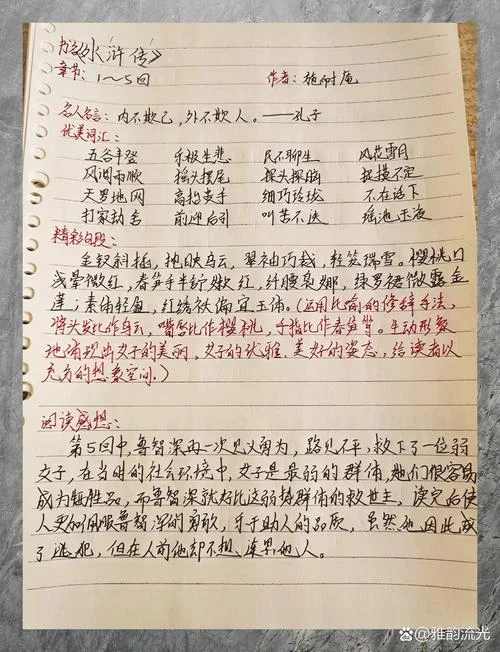 书名《水浒传》
章节：1～5回 作者：施耐庵
名人名言：内不欺己，外不欺人。——孔子
优美词汇：
五谷丰登 乐极生悲 民不聊生 风花雪月
风调雨顺 摇头摆尾 探头探脑 捉摸不定
天罗地网 高抬贵手 细巧玲珑 不在话下
打家劫舍 前迎后引 叫苦不迭 瑶池玉液
精彩句段：
金钗斜插，掩映乌云，翠袖巧裁，轻笼瑞雪。樱桃口
浅晕微红，春笋手半舒嫩红，纤腰袅娜，绿罗裙微露金
莲；素体轻盈，红绣袄偏宜玉体。（运用比喻的修辞手法，
将头发比作乌云，嘴唇比作樱桃，手指比作春笋等。生动形象
地体现出女子的美丽，女子的优雅、美好的姿态，给读者以
充分的想象空间。）
阅读感想：
第5回中，鲁智深再一次见义勇为，路见不平，救下了一位弱
女子，在当时的社会环境中，女子是最弱的群体，她们很容易
成为牺牲品，而鲁智深就好比这弱势群体的救世主，读完后使
人更加佩服鲁智深的勇敢，乐于助人的品质，虽然他因此成
了逃犯，但在人前他却不想连累他人。
雅韵流光